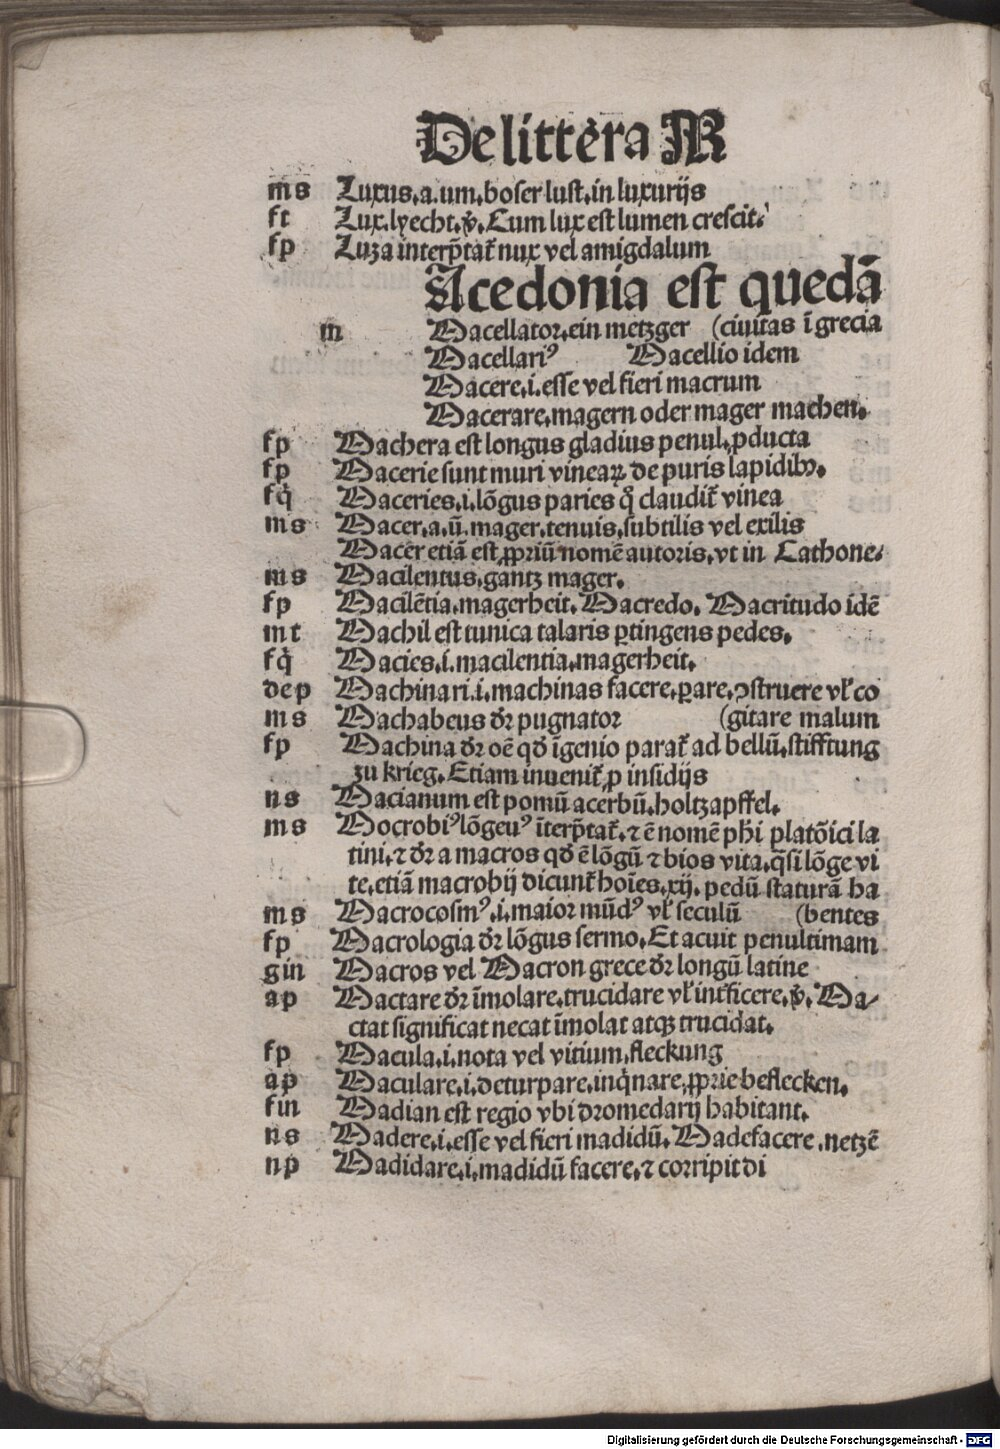 De littera M
ms Luxus,a.um,boser lust,in luxurijs
ft Lux.lyecht.ꝟ.Cum lux est lumen crescit.
fp Luza interp̄tat̄ nux vel amigdalum
Acedonia est quedā
m Macellator,ein metzger (ciuitas ī grecia
Macellariꝰ Macellio idem
Macere,i.esse vel fieri macrum
Macerare,magern oder mager machen.
fp Machera est longus gladius penul,ꝓducta
fp Macerie sunt muri vineaꝝ de puris lapidibꝰ.
fq̄ Maceries,i.lōgus paries q̄ claudit̄ vinea
ms Macer,a.ū.mager,tenuis,subtilis vel exilis
Macer etiā est ꝓpriū nomē autoris,vt in Cathone.
ms Macilentus,gantz mager.
fp Macilētia,magerheit.Macredo.Macritudo idē
mt Machil est tunica talaris ꝑtingens pedes.
fq̄ Macies,i.macilentia,magerheit.
dep Machinari.i.machinas facere,ꝑare,ꝯstruere vl̄ co
ms Machabeus dr̄ pugnator (gitare malum
fp Machina dr̄ oē qd̄ īgenio parat̄ ad bellū,stifftung
zu krieg.Etiam inuenit̄ ꝓ insidijs
ns Macianum est pomū acerbū.holtzapffel.
ms Mocrobiꝰ lōgeuꝰ īterp̄tat̄.⁊ ē nomē ph̄i platōici la
tini,⁊ dr̄ a macros qd̄ ē lōgū ⁊ bios vita,q̄si lōge vi
te,etiā macrobij dicunt̄ hoīes.xij.pedū staturā ha
ms Macrocosmꝰ.i.maior mūdꝰ vl̄ seculū (bentes
fp Macrologia dr̄ lōgus sermo.Et acuit penultimam
gin Macros vel Macron grece dr̄ longū latine
ap Mactare dr̄ īmolare,trucidare vl̄ int̄ficere.ꝟ.Ma⸗
ctat significat necat īmolat atqꝫ trucidat.
fp Macula.i.nota vel vitium,fleckung
ap Maculare,i.deturpare,inq̄nare,ꝓprie beflecken.
fin Madian est regio vbi dromedarij habitant.
ns Madere,i.esse vel fieri madidū.Madefacere,netzē
np Madidare,i.madidū facere,⁊ corripit di
Digitalisierung gefördert durch die Deutsche Forschungsgemeinschaft - DFG